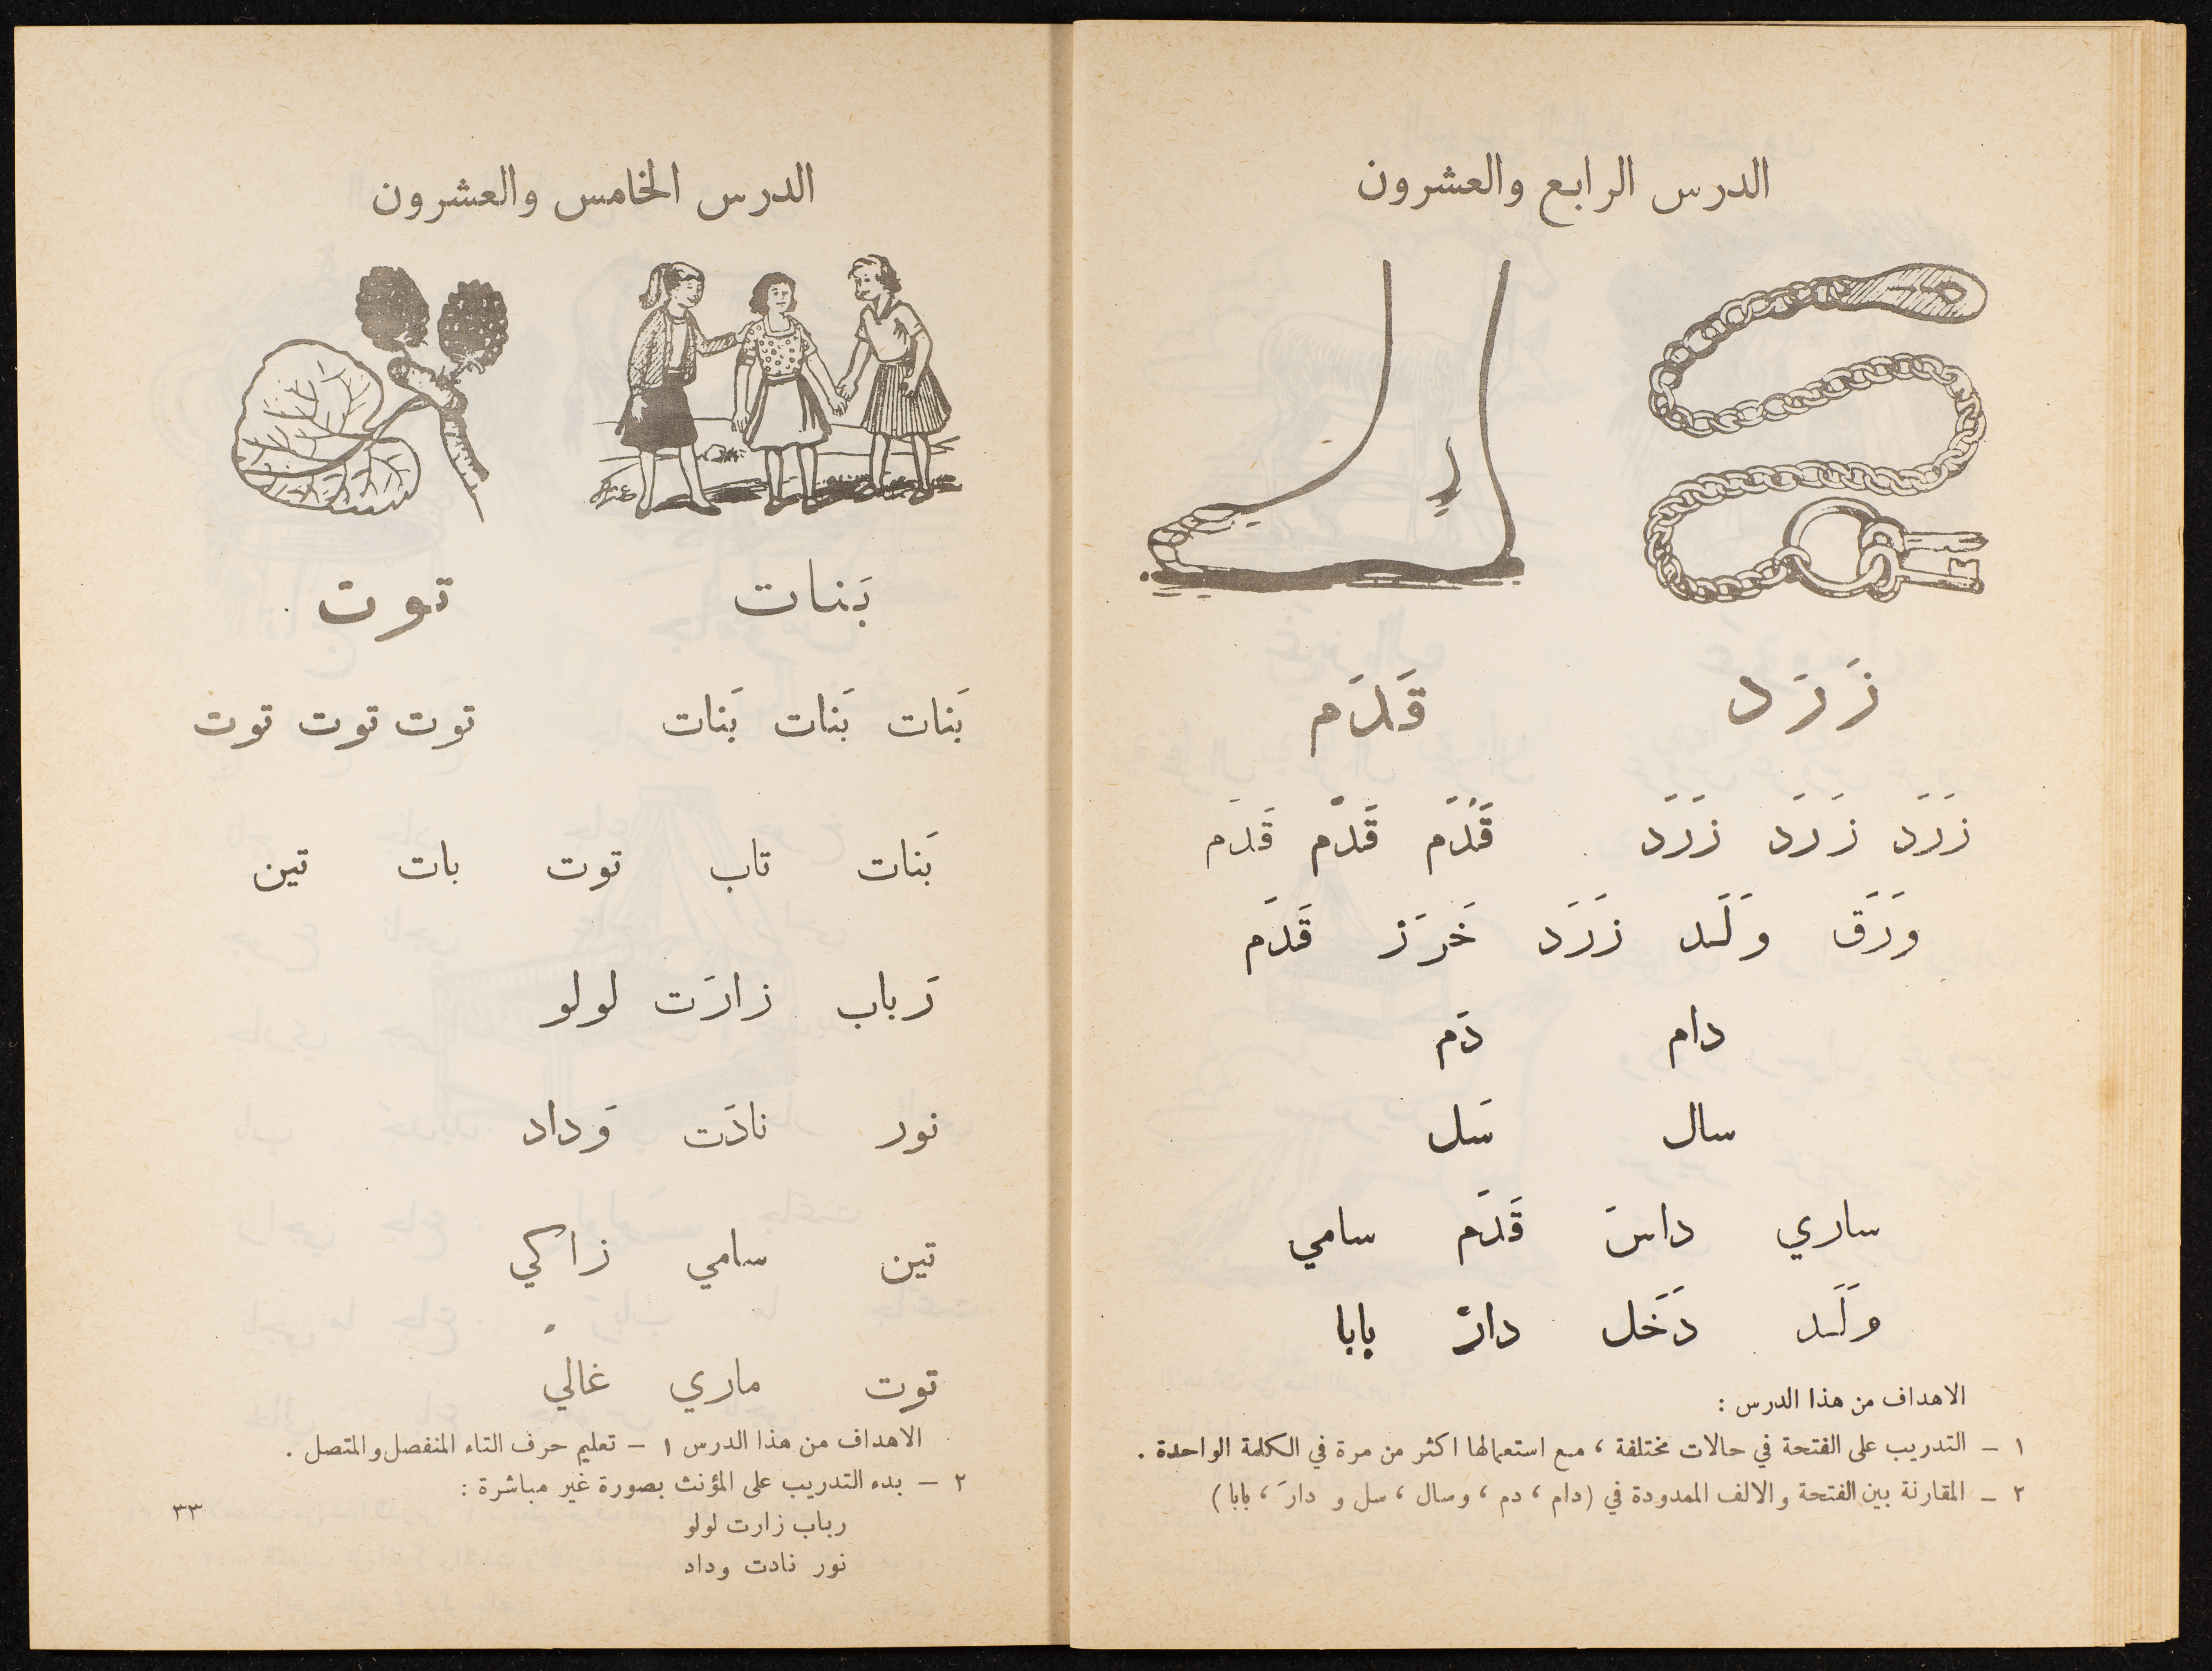 الدرس الرابع والعشرون
زَرَد قَدَم
زَرَد زَرَد زَرَد قَدَم قَدَم قَدَم
وَرَق وَلَد زَرَد خَرَز قَدَم
دام دَم
سال سَل
ساري داسَ قَدَم سامي
وَلَد دَخَل دارَ بابا
الاهداف من هذا الدرس :
١ – التدريب على الفتحة في حالات مختلفة ، مع استعمالها اكثر من مرة في الكلمة الواحدة .
٢ – المقارنة بين الفتحة والالف الممدودة في (دام ، دم ، وسال ، سل و دارَ ، بابا)
الدرس الخامس والعشرون
بَنات توت
بَنات بَنات بَنات توت توت توت
بَنات تاب توت بات تين
رَباب زارَت لولو
نور نادَت وَداد
تين سامي زاكي
توت ماري غالي
الاهداف من هذا الدرس ١ – تعليم حرف التاء المنفصل والمتصل .
٢ – بدء التدريب على المؤنث بصورة غير مباشرة :
رباب زارت لولو
نور نادت وداد
٣٣